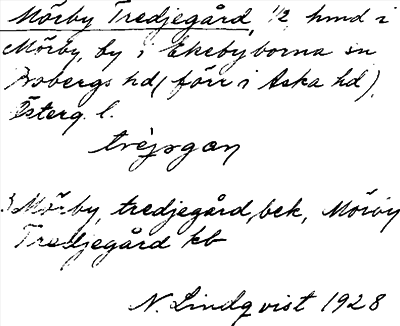 Mörby Tredjegård, 1/2 hmd i
Mörby, by i Ekebyborna sn
Bobergs hd (förr i Aska hd),
Österg. l.
trèjsgan
Mörby, tredjegård, bek, Mörby
Tredjegård kb
N. Lindqvist 1928